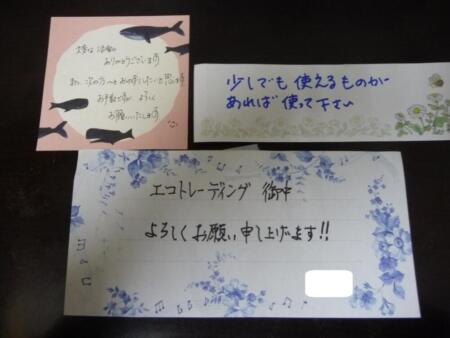 ありがとうございます
また、次の方へと したいと思います
お手数ですが、よろしく
お願いいたします
少しでも使えるものが
あれば使って下さい
エコトレーディング 御中
よろしくお願い申し上げます!!